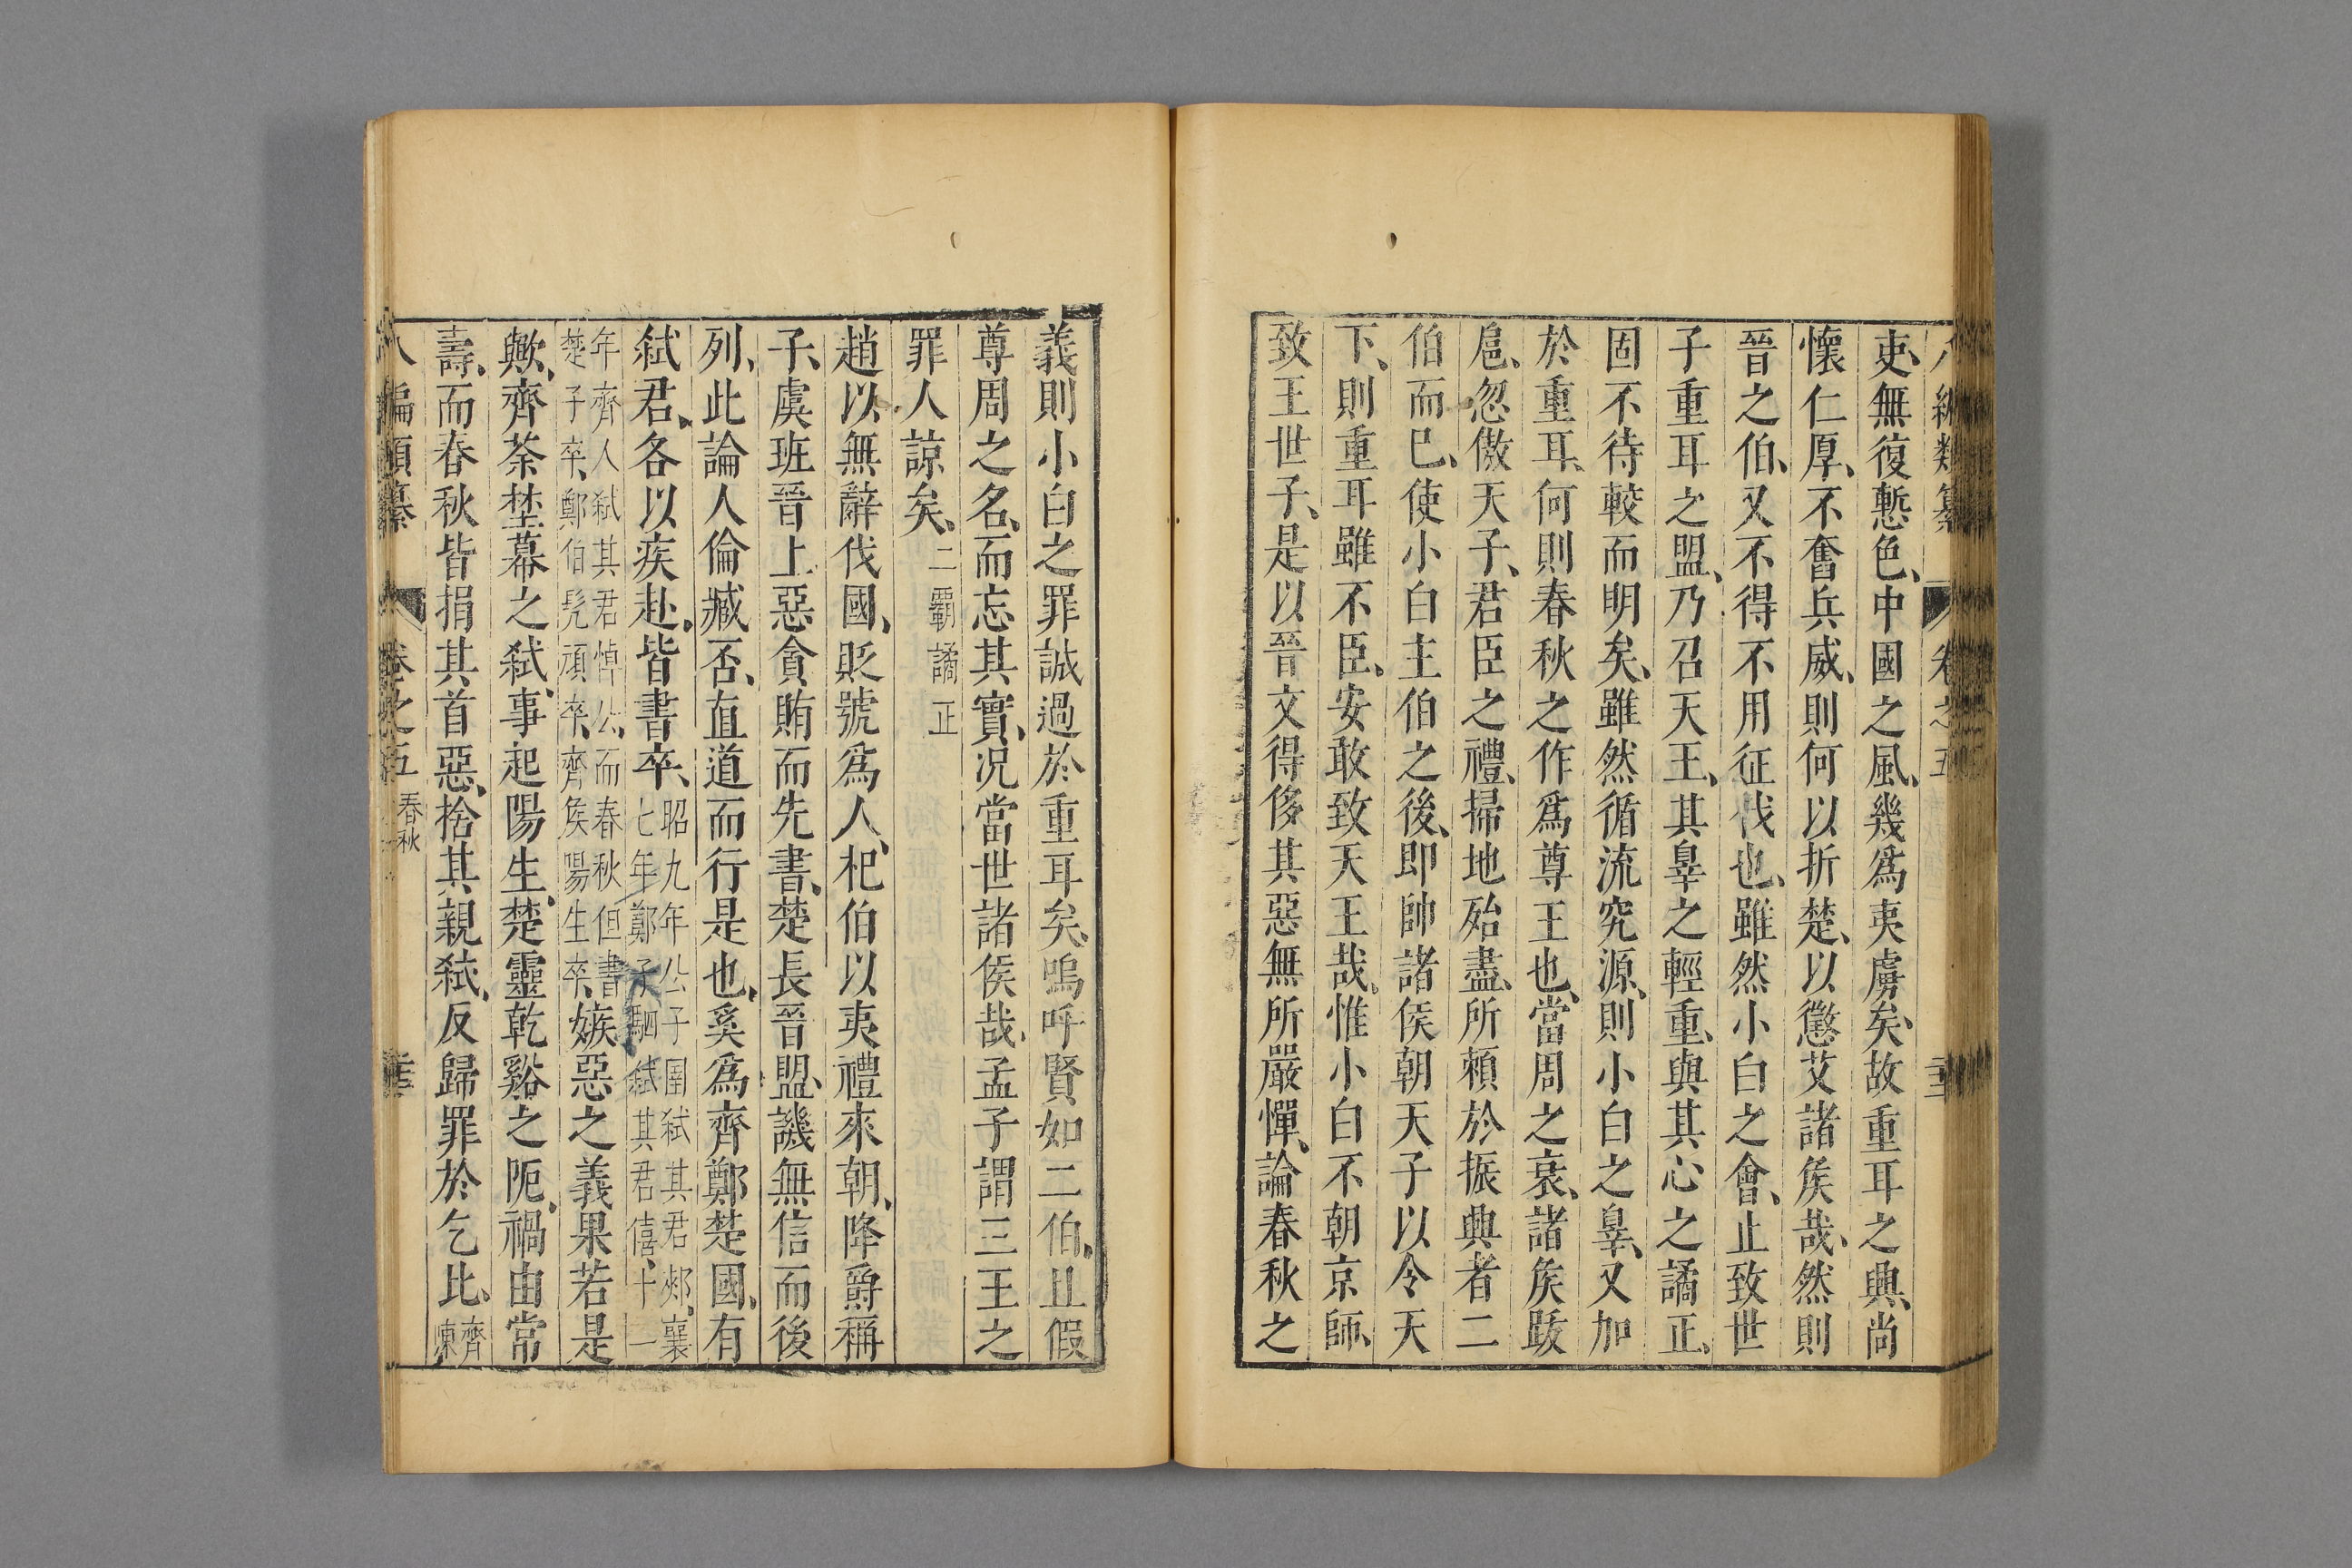 八編類纂 卷之五
吏、無復慙色、中國之風、幾爲夷虜矣、故重耳之典、尚
懷仁厚、不奮兵威、則何以折楚、以懲艾諸矦哉、然則
晉之伯、又不得不用征伐也、雖然小白之會、止致世
子重耳之盟、乃召天王、其辠之輕重、與其心之譎正、
固不待較而明矣、雖然循流究源、則小白之辠、又加
於重耳、何則春秋之作爲尊王也、當周之衰、諸矦跋
扈、忽傲天子、君臣之禮、掃地殆盡、所頼於振典者二
伯而巳、使小白主伯之後、即帥諸侯朝天子以令天
下、則重耳雖不臣、安敢致天王哉、惟小白不朝京師、
致王世子、是以晉文得侈其惡無所嚴憚、論春秋之
義則小白之罪誠過於重耳矣、嗚呼賢如二伯、止假
尊周之名、而忘其實、況當世諸侯哉、孟子謂三王之
罪人諒矣、二覇譎正
趙以無辭伐國、貶號爲人、杞伯以夷禮來朝、降爵稱
子、虞班晉上惡貪賄而先書、楚長晉盟、譏無信而後
列、此論人倫臧否、直道而行是也、奚爲齊鄭楚國、有
弑君、各以疾赴、皆書卒、昭九年公子圍弑其君郟、襄
七年鄭子駟弑其君僖、十一
年齊人弑其君悼公、而春秋但書
楚子卒、鄭伯髡頑卒、齊矦陽生卒、嫉惡之義果若是
歟、齊荼埜幕之弑、事起陽生、楚靈乾谿之阨、禍由常
壽、而春秋皆捐其首惡、捨其親弑、反歸罪於乞比、齊
陳
八編類纂 卷之五 春秋